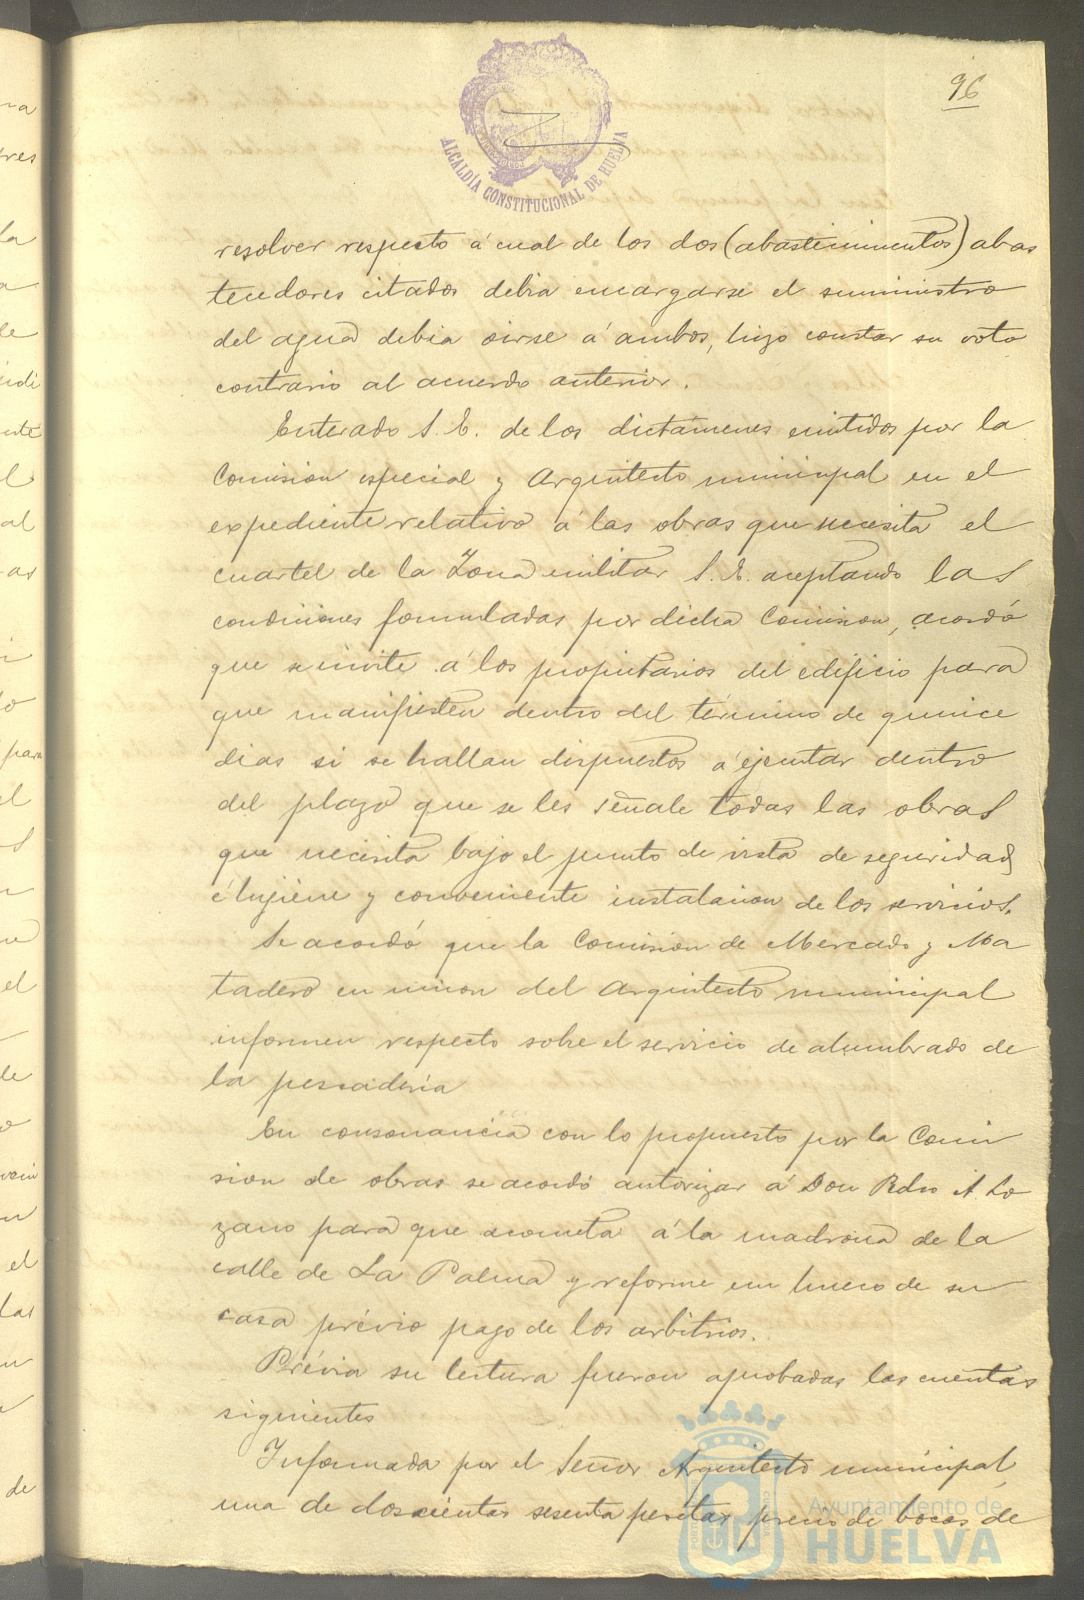 96
ALCALDÍA CONSTITUCIONAL DE HUELVA
resolver respecto á cual de los dos (abastecimientos) abas
tecedores citados debia encargarse el suministro
del agua debia oirse á ambos, hizo constar su voto
contrario al acuerdo anterior.
Enterado S. E. de los dictámenes emitidos por la
Comision especial y Arquitecto municipal en el
expediente relativo á las obras que necesita el
cuartel de la Zona militar S. E. aceptando las
condiciones formuladas por dicha Comision, acordó
que se invite á los propietarios del edificio para
que manifiesten dentro del término de quince
dias si se hallan dispuestos á ejecutar dentro
del plazo que se les señale todas las obras
que necesita bajo el punto de vista de seguridad
é higiene y conveniente instalacion de los servicios.
Se acordó que la Comision de Mercado y Ma
tadero en union del Arquitecto municipal
informen respecto sobre el servicio de alumbrado de
la pescaderia
En consonancia con lo propuesto por la Comi
sion de obras se acordó autorizar á Don Pedro A. Lo
zano para que acometa á la madrona de la
calle de La Palma y reforme un hueco de su
casa prévio pago de los arbitrios.
Prévia su lectura fueron aprobadas las cuentas
siguientes
Informada por el Señor Arquitecto municipal
una de doscientas sesenta pesetas precio de bocas de
Ayuntamiento de
HUELVA